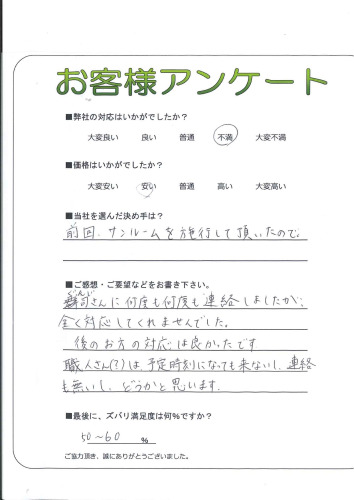 お客様アンケート
■弊社の対応はいかがでしたか？
大変良い 良い 普通 不満 大変不満
■価格はいかがでしたか？
大変安い 安い 普通 高い 大変高い
■当社を選んだ決め手は？
前回、サンルームを施行して頂いたので。
■ご感想・ご要望などをお書き下さい。
さんに何度も何度も連絡しましたが、
全く対応してくれませんでした。
後のお方の対応は良かったです
職人さん(?)は、予定時刻になっても来ないし、連絡
も無いし、どうかと思います.
■最後に、ズバリ満足度は何%ですか？
50〜60 %
ご協力頂き、誠にありがとうございました。